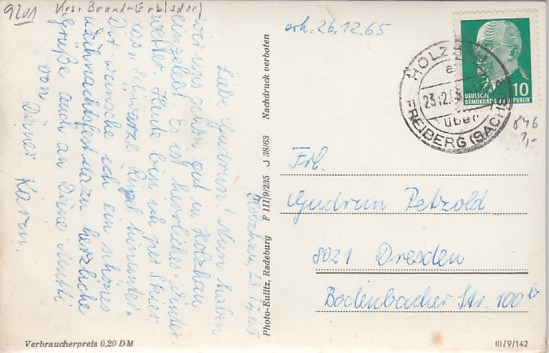 9201 Krs. Brand-Erbisdorf
erh. 26.12.65
Holzhau, 23.12.65
Liebe Gudrun! Nun haben
wir uns schon gut in Holzhau
eingelebt. Es ist herrliches Winter-
wetter. Heute bin ich per Skier
Dir wünsche ich ein schönes
Weihnachtsfest dazu herzliche
Grüße auch an Deine Mutti
von
Deiner Karin.
Photo-Eulitz, Radeburg F III/9/235 J 38/63 Nachdruck verboten
HOLZHAU
23.12.65
über
FREIBERG (SACHS)
DEUTSCHE
DEMOKRATISCHE REPUBLIK
10
846
1,-
Frl.
Gudrun Petzold
8021 Dresden
Bodenbacher Str. 100b
Verbraucherpreis 0,20 DM
III/9/142